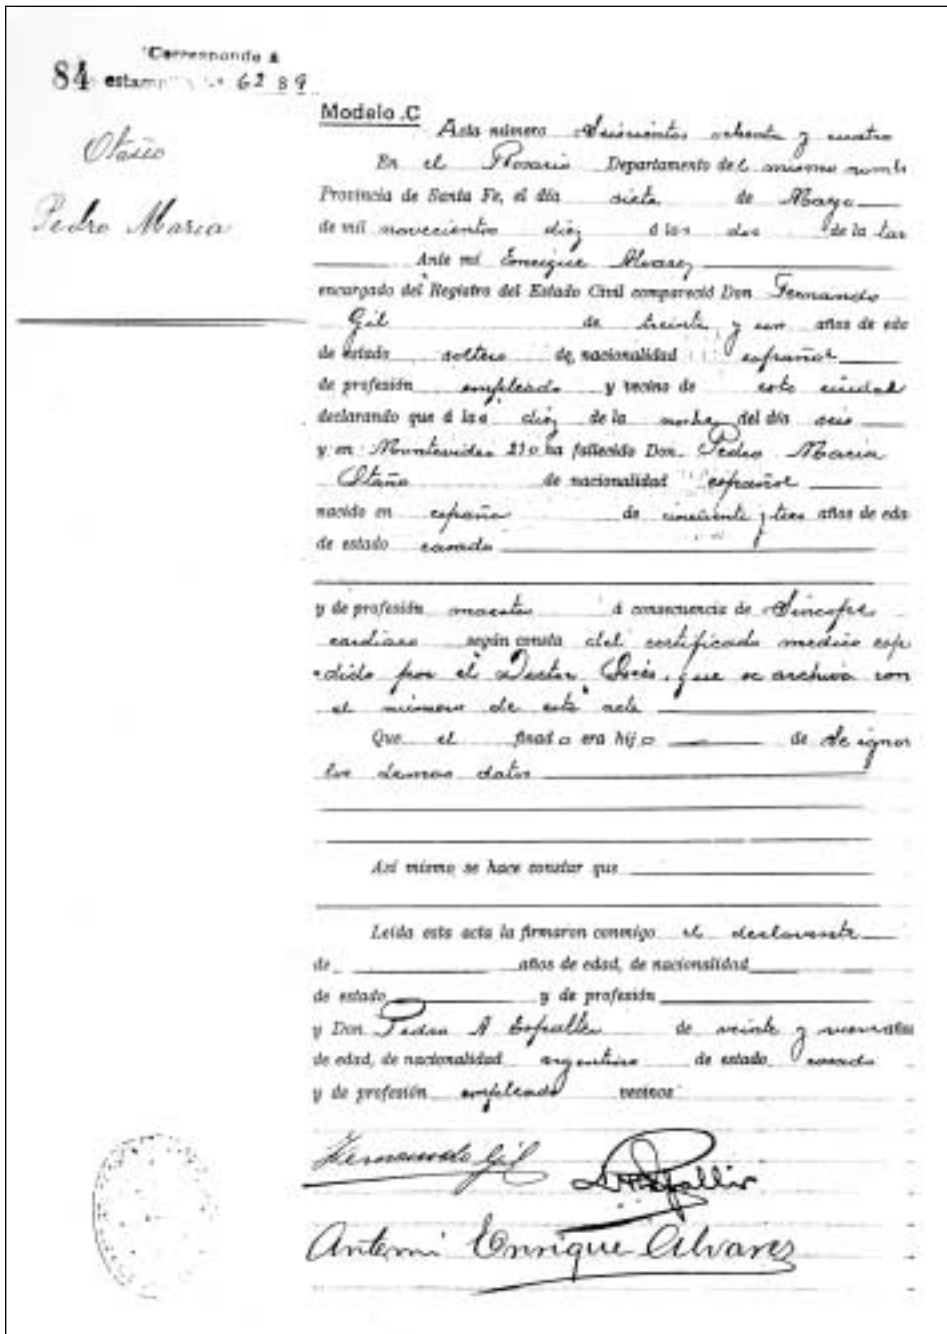 Corresponde a
84 estamp 6289
Otaño
Pedro Maria
Modelo .C
Acta número Seiscientos ochenta y cuatro
En el Rosario Departamento del mismo nomb
Provincia de Santa Fe, el día siete de Mayo
de mil novecientos diez á las dos de la tar
Ante mi Enrique Alvarez
encargado del Registro del Estado Civil compareció Don Fernando
Gil de treinta y un años de eda
de estado soltero de nacionalidad español
de profesión empleado y vecino de esta ciudad
declarando que á las diez de la noche del día seis
y en Montevideo 210 ha fallecido Don Pedro Maria
Otaño de nacionalidad español
nacido en españa de cincuenta y tres años de eda
de estado casado
y de profesión maestro á consecuencia de Sincope
cardiaco según consta del certificado medico espe
dido por el Doctor que se archiva con
el número de esta acta
Que el finado era hijo de Se ignor
los demas datos
Así mismo se hace constar que
Leída esta acta la firmaron conmigo el declarante
de años de edad, de nacionalidad
de estado y de profesión
y Don Pedro A Espalter de veinte y nueve años
de edad, de nacionalidad argentino de estado casado
y de profesión empleado vecinos
Fernando Gil
Antemi Enrique Alvarez